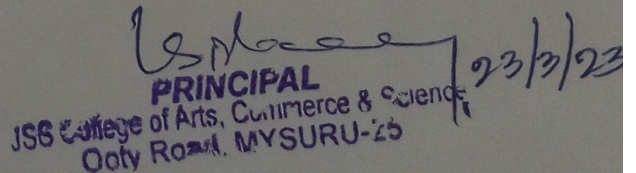 23/3/23
PRINCIPAL
JSS College of Arts, Commerce & Science,
Ooty Road, MYSURU-25